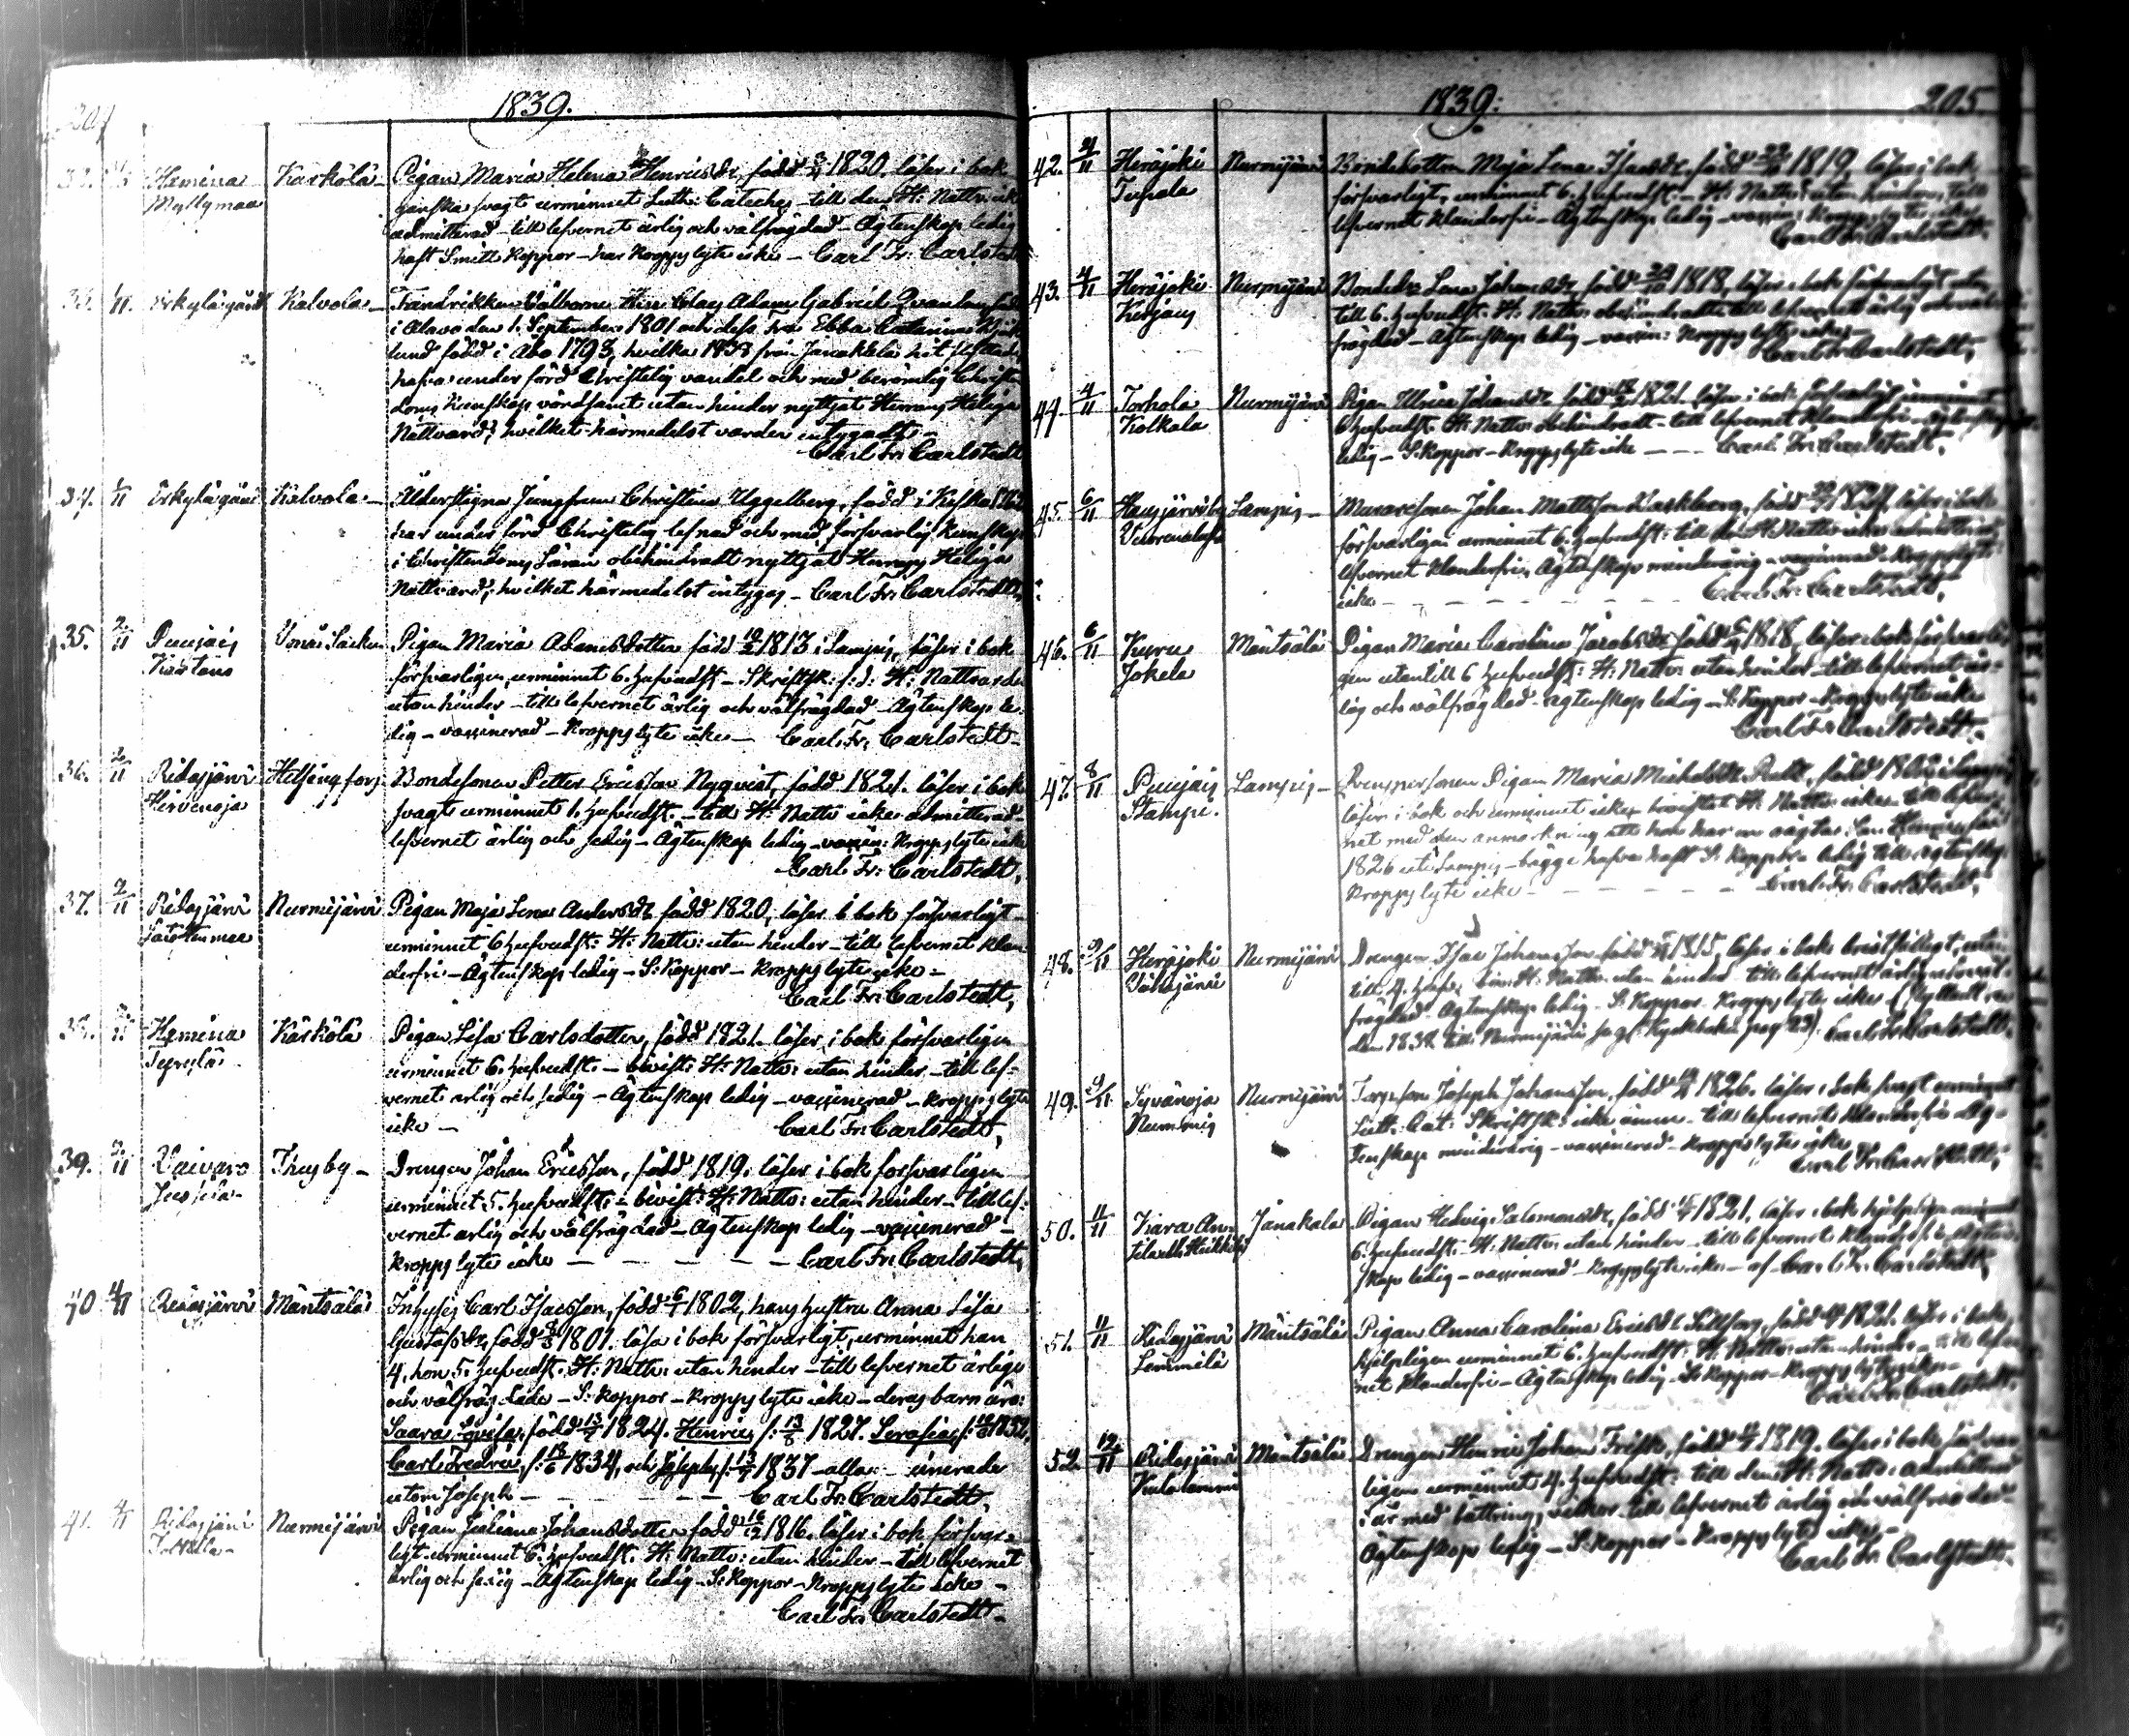 204
1839.
32. Hemina Kärkölä Pigan Maria Helena Henricsdr, född 1820. läser i bok
Myllymaa ganska svagt urminnet Luth: Cateches till den H: Nattv: icke
admitterad till lefvernet ärlig och välfrägdad Ägtenskap ledig
haft Smitt Koppor har kroppslyte icke Carl Fr: Carlstedt
33. 1/11 Erkylägård Kalvola
i den 1. September 1801 och dess Fru Ebba Catharina
lund född i Åbo 1793, hvilka 1833 från Janakkala hit
hafva under förd Christelig vandel och med berömlig Christen
doms Kunskap vördsamt utan hinder nyttjat Herrans Heliga
Nattvard, hvilket härmedelst varder intygadt
Carl Fr: Carlstedt
34. 1/11 Erkylägård Kalvola Ålderstigna Jungfrun Christina Uggelberg, född i
har under förd Christelig lefnad och med försvarlig kunskap
i Christendoms Läran obehindradt nyttjat Herrans Heliga
Nattvard, hvilket härmedelst intygas Carl Fr: Carlstedt
35. 2/11 Pigan Maria Adamsdotter född 1813 i Lampis, läser i bok
försvarligen, urminnet 6. hufvudst. Skriftsk: s: d: H: Nattvarden
utan hinder till lefvernet ärlig och välfrägdad Ägtenskap le
dig vaccinerad Kroppslyte icke Carl Fr: Carlstedt
36. 2/11 Ridasjärvi Helsingfors Bondesonen Petter Ericsson Nyqvist, född 1821. läser i bok
Hirvenoja svagt urminnet 1. hufvudst. till H: Nattv: icke admitterad
lefvernet ärlig och sedig Ägtenskap ledig vaccin: Kroppslyte icke
Carl Fr: Carlstedt,
37. 2/11 Ridasjärvi Nurmijärvi Pigan Maja Lena Andersdr född 1820, läser i bok försvarligt
urminnet 6 hufvudst: H: Nattv: utan hinder till lefvernet klan
derfri Ägtenskap ledig S: Koppor Kroppslyte icke
Carl Fr: Carlstedt,
38. Hemina Kärkölä Pigan Lisa Carlsdotter, född 1821. läser i bok försvarligen
urminnet 6. hufvudst. bevist: H: Nattv: utan hinder till lef=
vernet ärlig och sedig Ägtenskap ledig vaccinerad kroppslyte
icke Carl Fr: Carlstedt,
39. 2/11 Thusby Drengen Johan Ericsson, född 1819. läser i bok försvarligen
urminnet 5. hufvudst. bevist: H: Nattv: utan hinder till lef=
vernet ärlig och välfrägdad Ägtenskap ledig vaccinerad
kroppslyte icke Carl Fr: Carlstedt,
40 4/11 Ridasjärvi Mäntsälä Inhyses Carl Isacsson, född 1802, hans hustru Anna Lisa
Gustafsdr, född 1801. läsa i bok försvarligt, urminnet han
4, hon 5. hufvudst. H: Nattv: utan hinder till lefvernet ärliga
och välfrägdade S: Koppor kroppslyte icke deras barn äro:
Saara Lovisa, född 1824. Henric f: 13/8 1827. Serafia f: 1832,
Carl Fredric f: 18/6 1834, och Joseph f: 1837 alla
utom Joseph Carl Fr: Carlstedt,
41. 4/11 Ridasjärvi Nurmijärvi Pigan Juliana Johansdotter född 16/12 1816. läser i bok försvar=
ligt urminnet 6. hufvudst. H: Nattv: utan hinder till lefvernet
ärlig och sedig Ägtenskap ledig S: Koppor Kroppslyte icke
Carl Fr: Carlstedt
1839.
205.
42. Herajoki Nurmijärvi Bondedottren Maja Lena Isacsdr född 1819, läser i bok
försvarligt, urminnet 6. hufvudst. H: Nattv: utan hinder, till
lefvernet klanderfri Ägtenskap ledig vaccin: Kroppslyte icke
Carl Fr: Carlstedt.
43. 4/11 Herajoki Nurmijärvi Bondedr Lena Johansdr född 1818, läser i bok försvarligt utan
till 6. hufvudst. H: Nattv: obehindradt till lefvernet ärlig och väl
frägdad Ägtenskap ledig vaccin: kroppslyte icke
Carl Fr: Carlstedt,
44. 4/11 Torhola Nurmijärvi Pigan Ulrica Johansdr född 1821. läser i bok försvarligt urminnet
Kolkala 6 hufvudst. H: Nattv: obehindradt till lefvernet klanderfri Ägtenskap
ledig S. Koppor Kroppslyte icke Carl Fr: Carlstedt,
45. 6/11 Hausjärviby Lampis Johan Mattsson född läser i bok
försvarligen urminnet 6. hufvudst: till H: Nattv: icke admitterad
lefvernet klanderfri, Ägtenskap minderårig vaccinerad kroppslyte
icke Carl Fr: Carlstedt,
46. 6/11 Mäntsälä Pigan Maria Carolina Jacobsdr född 1818, läser i bok försvarli
Jokela gen utantill 6 hufvudst: H: Nattv: utan hinder till lefvernet är=
lig och välfrägdad ägtenskap ledig S: Koppor Kroppslyte icke
Carl Fr: Carlstedt.
47. 8/11 Lampis Pigan Maria Michelsdr född i Lampis
Stampi. läser i bok och urminnet icke, bevistat H: Nattv: icke till lefver
net med den anmärkning att hon har en oägta Son
1826 uti Lampis bägge hafva haft S. Koppor ledig till ägtenskap
Kroppslyte icke Carl Fr: Carlstedt,
48. 9/11 Herajoki Nurmijärvi Drengen Isac Johansson född 1815, läser i bok bristfälligt, utan
till 4. hufv: H: Nattv: utan hinder till lefvernet ärlig och väl
frägdad Ägtenskap ledig S. Koppor Kroppslyte icke
den 1838 till Nurmijärvi Carl Fr: Carlstedt.
49. 9/11 Syvänoja Nurmijärvi Joseph Johansson, född 1826. läser i bok svagt urminnet
Nummis Luth. Cat: Skriftsk: icke ännu till lefvernet klanderfri Äg=
tenskap minderårig vaccinerad Kroppslyte icke
Carl Fr: Carlstedt,
50. 11/11 Janakkala Pigan Hedvig Salomonsdr, född 1821, läser i bok hjelpligen urminnet
6. hufvudst. H: Nattv: utan hinder till lefvernet klanderfri Ägten
skap ledig vaccinerad Kroppslyte icke af Carl Fr: Carlstedt,
51. 11/11 Ridasjärvi Mäntsälä Pigan Anna Carolina Ericsdr född 1821. läser i bok
Lemmilä hjelpligen urminnet 6. hufvudst: H. Nattv: utan hinder till lefver
net klanderfri Ägtenskap ledig S. Koppor Kroppslyte icke
Carl Fr: Carlstedt.
52. 12/11 Ridasjärvi Mäntsälä Drengen Henric Johan Frisk, född 1819. läser i bok försvar
ligen urminnet 4. hufvudst: till den H: Nattv: admitterad
i år med bättrings vilkor till lefvernet ärlig och välfrägdad
Ägtenskap ledig S: Koppor Kroppslyte icke
Carl Fr: Carlstedt.